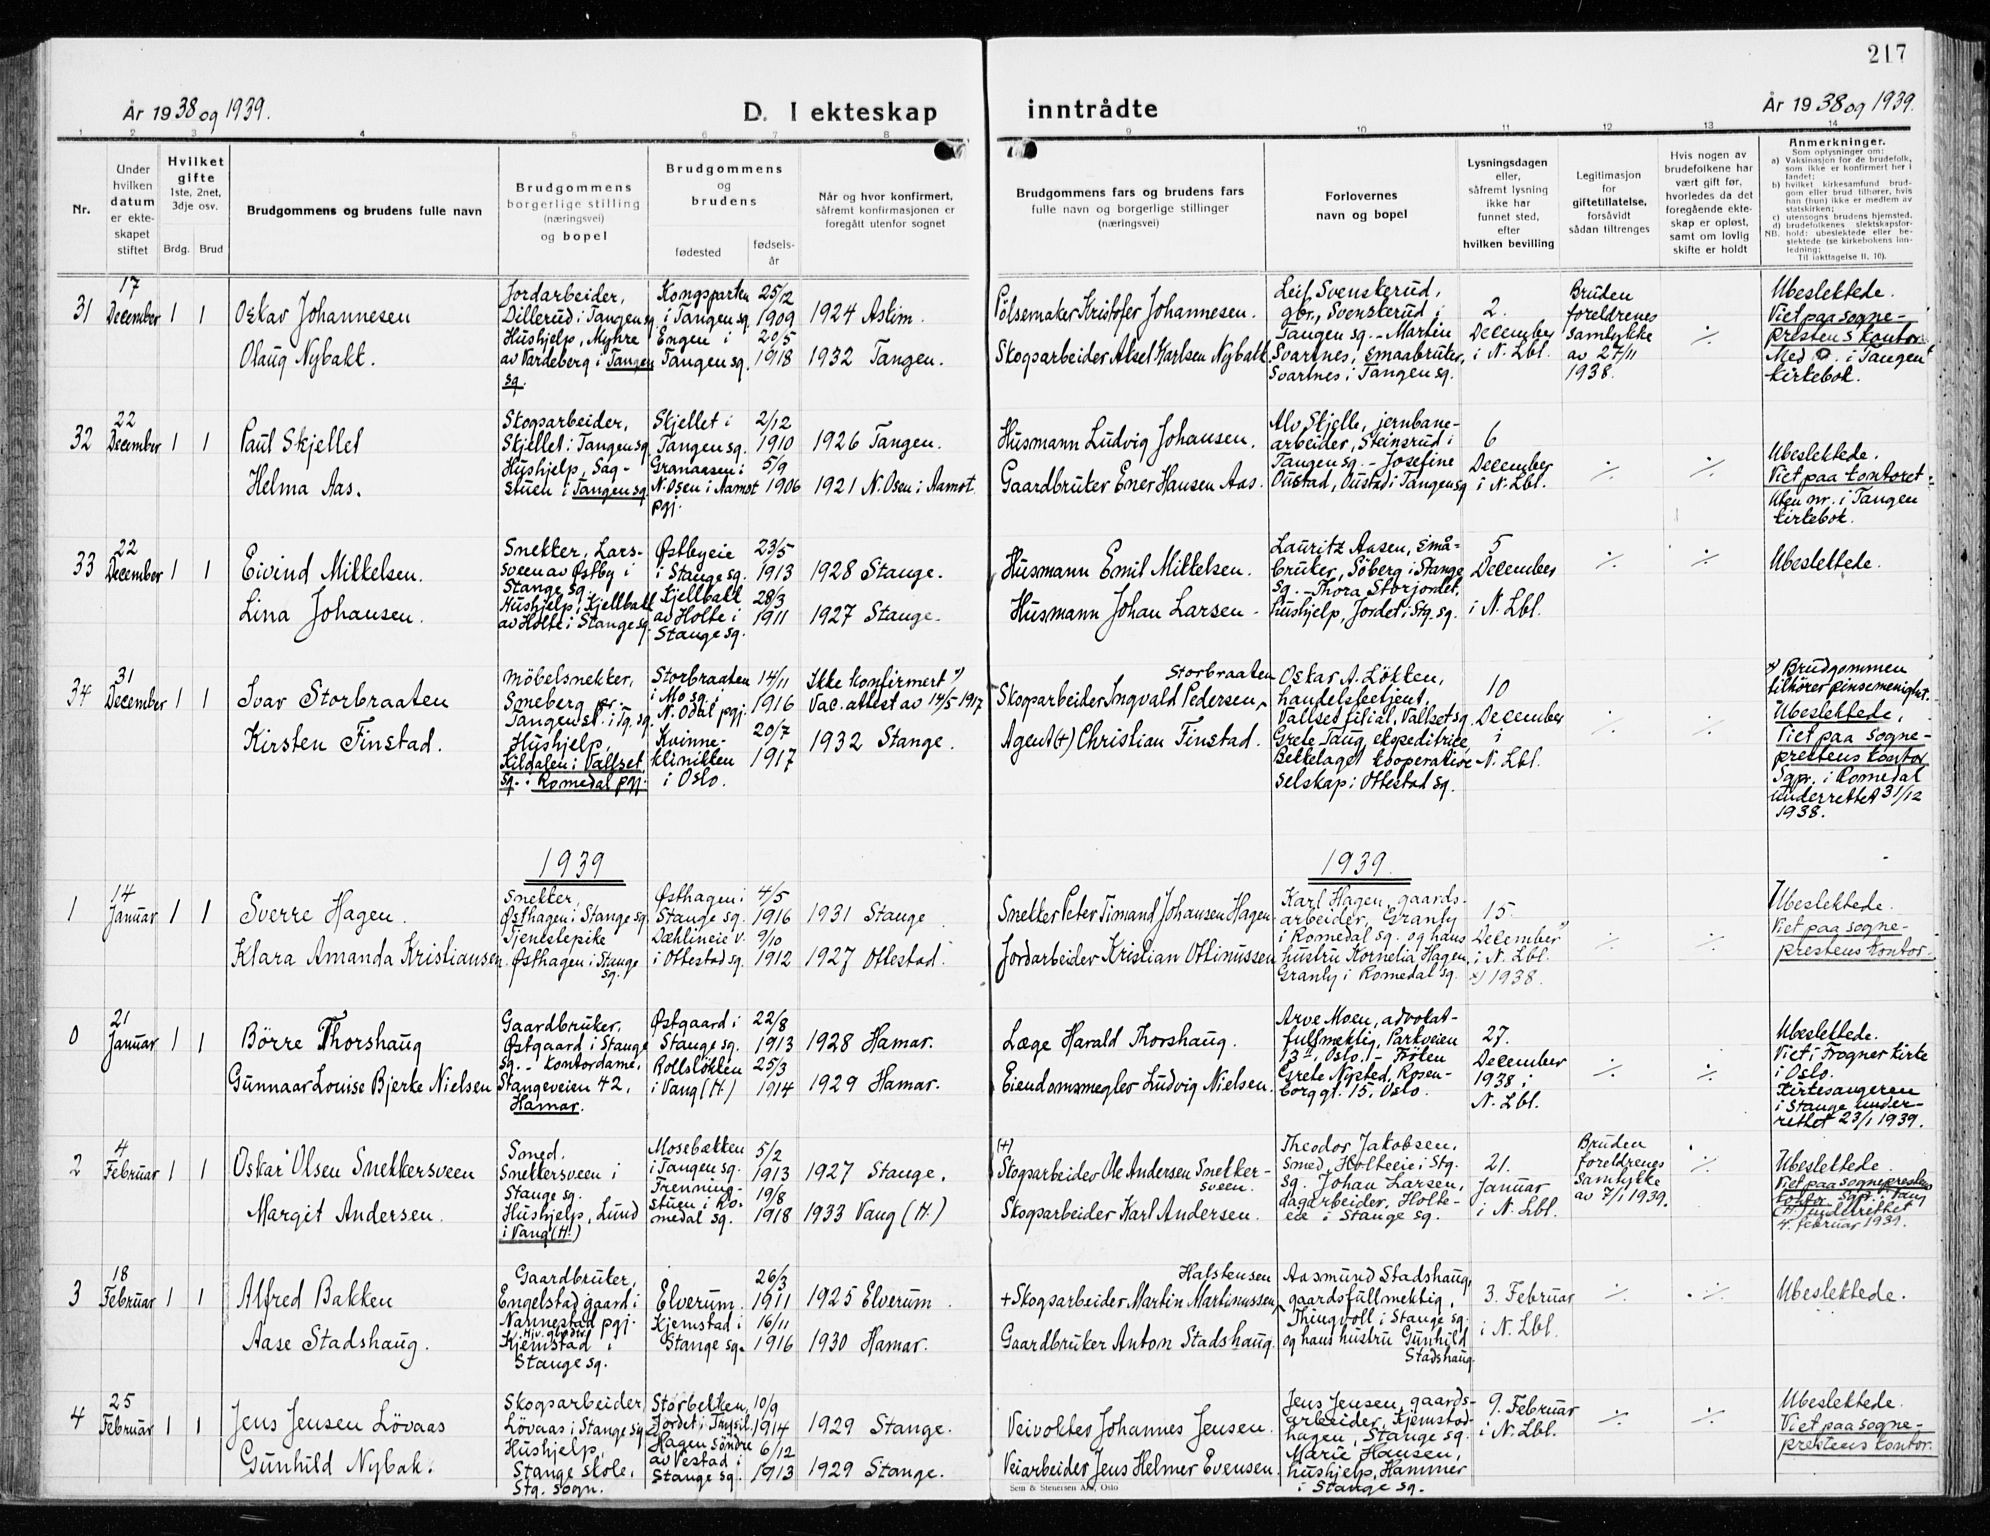 217
År 1938 og 1939.
D. I ekteskap inntrådte
År 1938 og 1939.
1 2 3 4 5 6 7 8 9 10 11 12 13 14
Nr.
Under
hvilken
datum
er ekte-
skapet
stiftet
Hvilket
gifte
1ste, 2net,
3dje osv.
Brdg. Brud
Brudgommens og brudens fulle navn
Brudgommens
borgerlige stilling
(næringsvei)
og bopel
Brudgommens
og
brudens
fødested
fødsels-
år
Når og hvor konfirmert,
såfremt konfirmasjonen er
foregått utenfor sognet
Brudgommens fars og brudens fars
fulle navn og borgerlige stillinger
(næringsvei)
Forlovernes
navn og bopel
Lysningsdagen
eller,
såfremt lysning
ikke har
funnet sted,
efter
hvilken bevilling
Legitimasjon
for
giftetillatelse,
forsåvidt
sådan tiltrenges
Hvis nogen av
brudefolkene har
vært gift før,
hvorledes da det
foregående ekte-
skap er opløst,
samt om lovlig
skifte er holdt
Anmerkninger.
Som oplysninger om:
a) Vaksinasjon for de brudefolk,
som ikke er konfirmert her i
landet;
b) hvilket kirkesamfund brud-
gom eller brud tilhører, hvis
han (hun) ikke er medlem av
statskirken;
c) utensogns brudens hjemsted.
d) brudefolkenes slektskapsfor-
hold: ubeslektede eller be-
slektede (se kirkebokens inn-
ledning;
NB.
Til iakttagelse II, 10).
31
17
December
1 1
Oskar Johannesen
Olaug Nybakk.
Jordarbeider,
Dillerud i Tangen sg.
Hushjelp, Myhre
av Vardeberg i Tangen
sg.
Kongsparten
i Tangen sg.
Engen i
Tangen sg.
25/2
1909
20/5
1918
1924 Askim.
1932 Tangen.
Pølsemaker Kristofer Johannesen.
Skogsarbeider Aksel Karlsen Nybakk.
Leif Svenskerud,
gbr., Svenskerud i
Tangen sg. - Martin
Svartnes, smaabruker,
Svartnes i Tangen sg.
2.
December
i N. Lbl.
Bruden
foreldrenes
samtykke
av 27/11
1938.
·/·
Ubeslektede.
Viet paa sogne-
prestens kontor.
Med 0. i Tangen
kirkebok.
32
22
December
1 1
Paul Skjellet
Helma Aas.
Skogsarbeider,
Skjellet i Tangen sg.
Hushjelp, Sag-
stuen i Tangen sg.
Skjellet i
Tangen sg.
Granaasen i
N. Osen i Aamot
pgj.
2/12
1910
5/9
1906
1926 Tangen.
1921 N. Osen i Aamot.
Husmann Ludvig Johansen.
Gaardbruker Ener Hansen Aas.
Alv Skjelle, jernbane-
arbeider, Steinsrud i
Tangen sg. - Josefine
Oustad, Oustad i Tangen sg
6
December
i N. Lbl.
·/·
·/·
Ubeslektede.
Viet paa kontoret.
Uten nr. i Tangen
kirkebok.
33
22
December
1 1
Eivind Mikkelsen.
Lina Johansen.
Snekker, Lars-
sveen av Østby i
Stange sg.
Hushjelp, Kjellbakk
av Holte i Stange sg.
Østbyeie
i Stange sg.
Kjellbakk
av Holte i
Stange sg.
23/5
1913
28/3
1911
1928 Stange.
1927 Stange.
Husmann Emil Mikkelsen.
Husmann Johan Larsen.
Lauritz Aasen, små-
bruker, Söberg i Stange
sg. - Thora Storjordet,
hushjelp, Jordet i Stg. sg.
5
December
i N. Lbl.
·/·
·/·
Ubeslektede.
34
31
December
1 1
Ivar Storbraaten
Kirsten Finstad.
Möbelsnekker,
Smeberg pr.
Tangen st. i Tg. sg.
Hushjelp,
Kildalen i Vallset
sg. i Romedal pgj.
Storbraaten
i Mo sg. i
N. Odal pgj.
Kvinne-
klinikken
i Oslo.
14/11
1916
20/7
1917
Ikke konfirmert x)
Vac. attest av 14/5 1917
1932 Stange.
Storbraaten
Skogsarbeider Ingvald Pedersen
Agent (+) Christian Finstad.
Oskar A. Lökken,
handelsbetjent,
Vallset filial, Vallset sg.
Grete Taug, ekspeditrice,
Bekkelaget kooperative
selskap i Ottestad sg.
10
December
i
N. Lbl.
·/·
·/·
x) Brudgommen
tilhører pinsemenighet.
Ubeslektede.
Viet paa sogne-
prestens kontor
Sgpr. i Romedal
underrettet 31/12
1938.
1939
1939.
1
14
Januar
1 1
Sverre Hagen.
Klara Amanda Kristiansen.
Snekker,
Østhagen i Stange sg.
Tjenestepike
Østhagen i Stange
sg.
Østhagen i
Stange sg.
Dæhlineie v.
i Ottestad sg.
4/5
1916
9/10
1912
1931 Stange
1927 Ottestad.
Snekker Peter Timand Johansen Hagen
Jordarbeider Kristian Ottinussen
Karl Hagen, gaards-
arbeider, Granly
i Romedal sg. og hans
hustru Kornelia Hagen,
Granly i Romedal sg.
15.
December x)
i N. Lbl.
x) 1938.
·/·
·/·
Ubeslektede.
Viet paa sogne-
prestens kontor.
0
21
Januar
1 1
Börre Thorshaug
Gunnaar Louise Bjerke Nielsen
Gaardbruker,
Østgaard i Stange
sg. - Kontordame,
Stangeveien 42,
Hamar.
Østgaard i
Stange sg.
Rollsløkken
i Vang (H.)
22/8
1913
25/3
1914
1928 Hamar.
1929 Hamar.
Læge Harald Thorshaug.
Eiendomsmegler Ludvig Nielsen.
Arve Moen, advokat-
fullmektig, Parkveien
13, Oslo. - Frøken
Grete Nysted, Rosen-
borggt. 15, Oslo.
27.
December
1938 i
N. Lbl.
·/·
·/·
Ubeslektede.
Viet i Frogner kirke
i Oslo.
Kirkesangeren
i Stange under-
rettet 23/1 1939.
2
4
Februar
1 1
Oskar Olsen Snekkersveen
Margit Andersen.
Smed.
Snekkersveen i
Stange sg.
Hushjelp, Lund
i Vang (H.)
Mosebækken
i Tangen sg.
Frenning-
stuen i Ro-
medal sg.
5/2
1913
19/8
1918
1927 Stange.
1933 Vang (H.)
(+)
Skogsarbeider Ole Andersen Snekker-
sveen.
Skogsarbeider Karl Andersen.
Theodor Jakobsen,
smed, Holteeie i Stg.
sg. Johan Larsen,
dagarbeider, Holte-
eie i Stange sg.
21.
Januar
i N. Lbl.
Bruden
foreldrenes
samtykke
av 7/1 1939.
·/·
Ubeslektede.
Viet paa sogneprestens
kontor. Sgpr. i Vang
(H.) underrettet
4. februar 1939.
3
18
Februar
1 1
Alfred Bakken
Aase Stadshaug.
Gaardbruker,
Engelstad gaard i
Nannestad pgj.
Hjv. gbdtr.
Kjemstad i
Stange sg.
Elverum.
Kjemstad i
Stange sg.
26/3
1911
16/11
1916
1925 Elverum.
1930 Hamar.
Halstensen
+ Skogsarbeider Martin Martinussen
Gaardbruker Anton Stadshaug.
Aasmund Stadshaug,
gaardsfullmektig,
Thingvoll i Stange sg.
og hans hustru Gunhild
Stadshaug.
3. Februar
i N. Lbl.
·/·
·/·
Ubeslektede.
4
25
Februar
1 1
Jens Jensen Lövaas
Gunhild Nybak.
Skogsarbeider,
Lövaas i Stange sg.
Hushjelp,
Stange skole,
Stg. sogn.
Storbekken
Jordet i Trysil
Hagen söndre
av Vestad i
Stange sg.
10/9
1914
6/12
1913
1929 Stange.
1929 Stange.
Veivokter Johannes Jensen.
Veiarbeider Jens Helmer Evensen.
Jens Jensen, gaards-
arbeider, Kjemstad-
hagen, Stange sg.
Marie Hansen,
hushjelp, Hammer
i Stange sg.
9. Februar
i N. Lbl.
·/·
·/·
Ubeslektede.
Viet paa sogne-
prestens kontor.
Sem & Stenersen A/S, Oslo